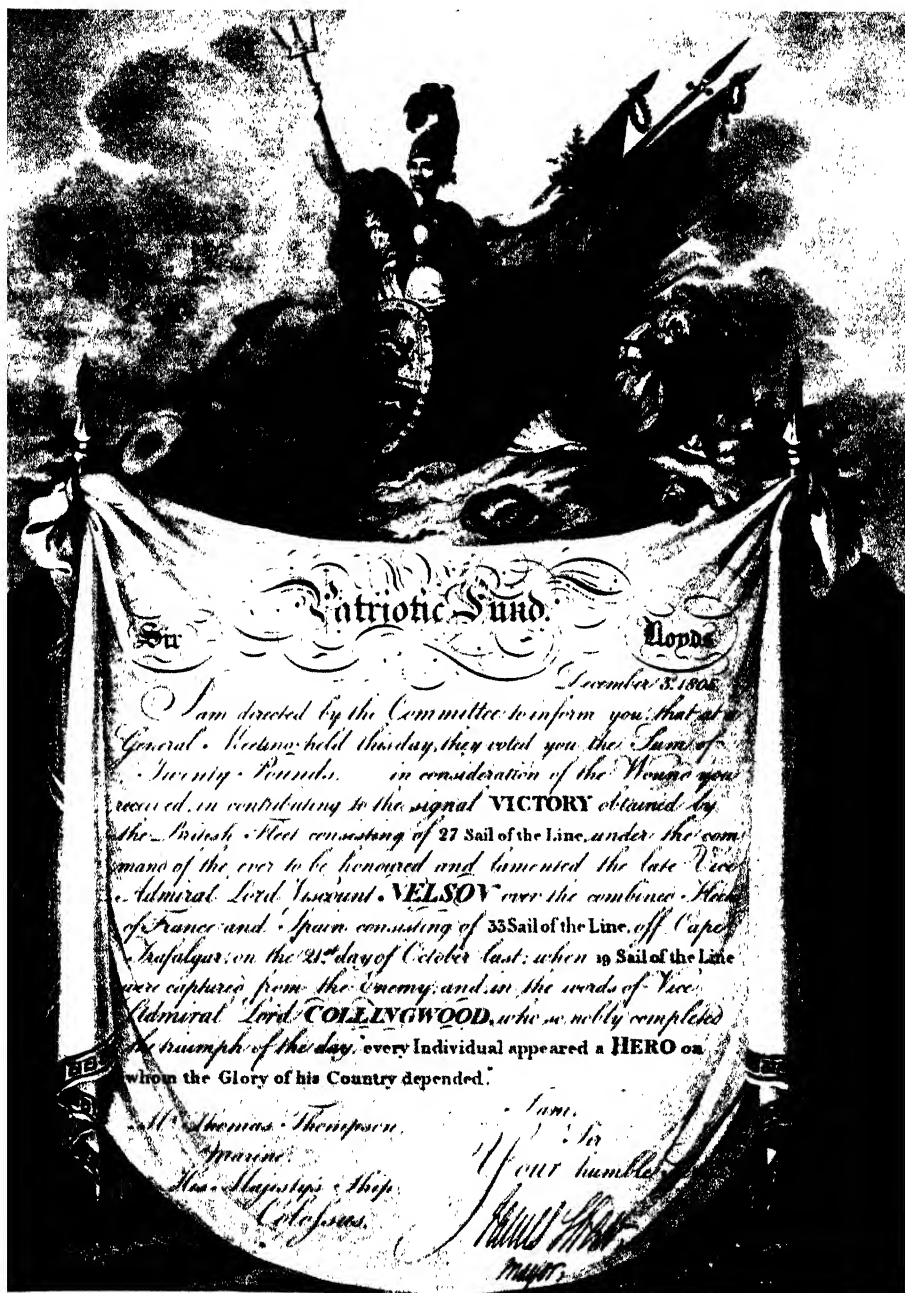 Patriotic Fund.
Sir Lloyds
December 3. 1805
I am directed by the Committee to inform you, that at a
General Meeting held this day, they voted you the Sum of
Twenty Pounds. in consideration of the Wound you
received, in contributing to the signal VICTORY obtained by
the British Fleet consisting of 27 Sail of the Line, under the com
mand of the ever to be honoured and lamented the late Vice
Admiral Lord Viscount NELSON over the combined Fleet
of France and Spain consisting of 33 Sail of the Line, off Cape
Trafalgar, on the 21st day of October last; when 19 Sail of the Line
were captured from the Enemy, and, in the words of Vice
Admiral Lord COLLINGWOOD, who so nobly completed
the triumph of the day, "every Individual appeared a HERO on
whom the Glory of his Country depended."
I am,
Mr Thomas Thompson, Sir
Marine. Your humble
His Majesty's Ship
Colossus.
Mayor